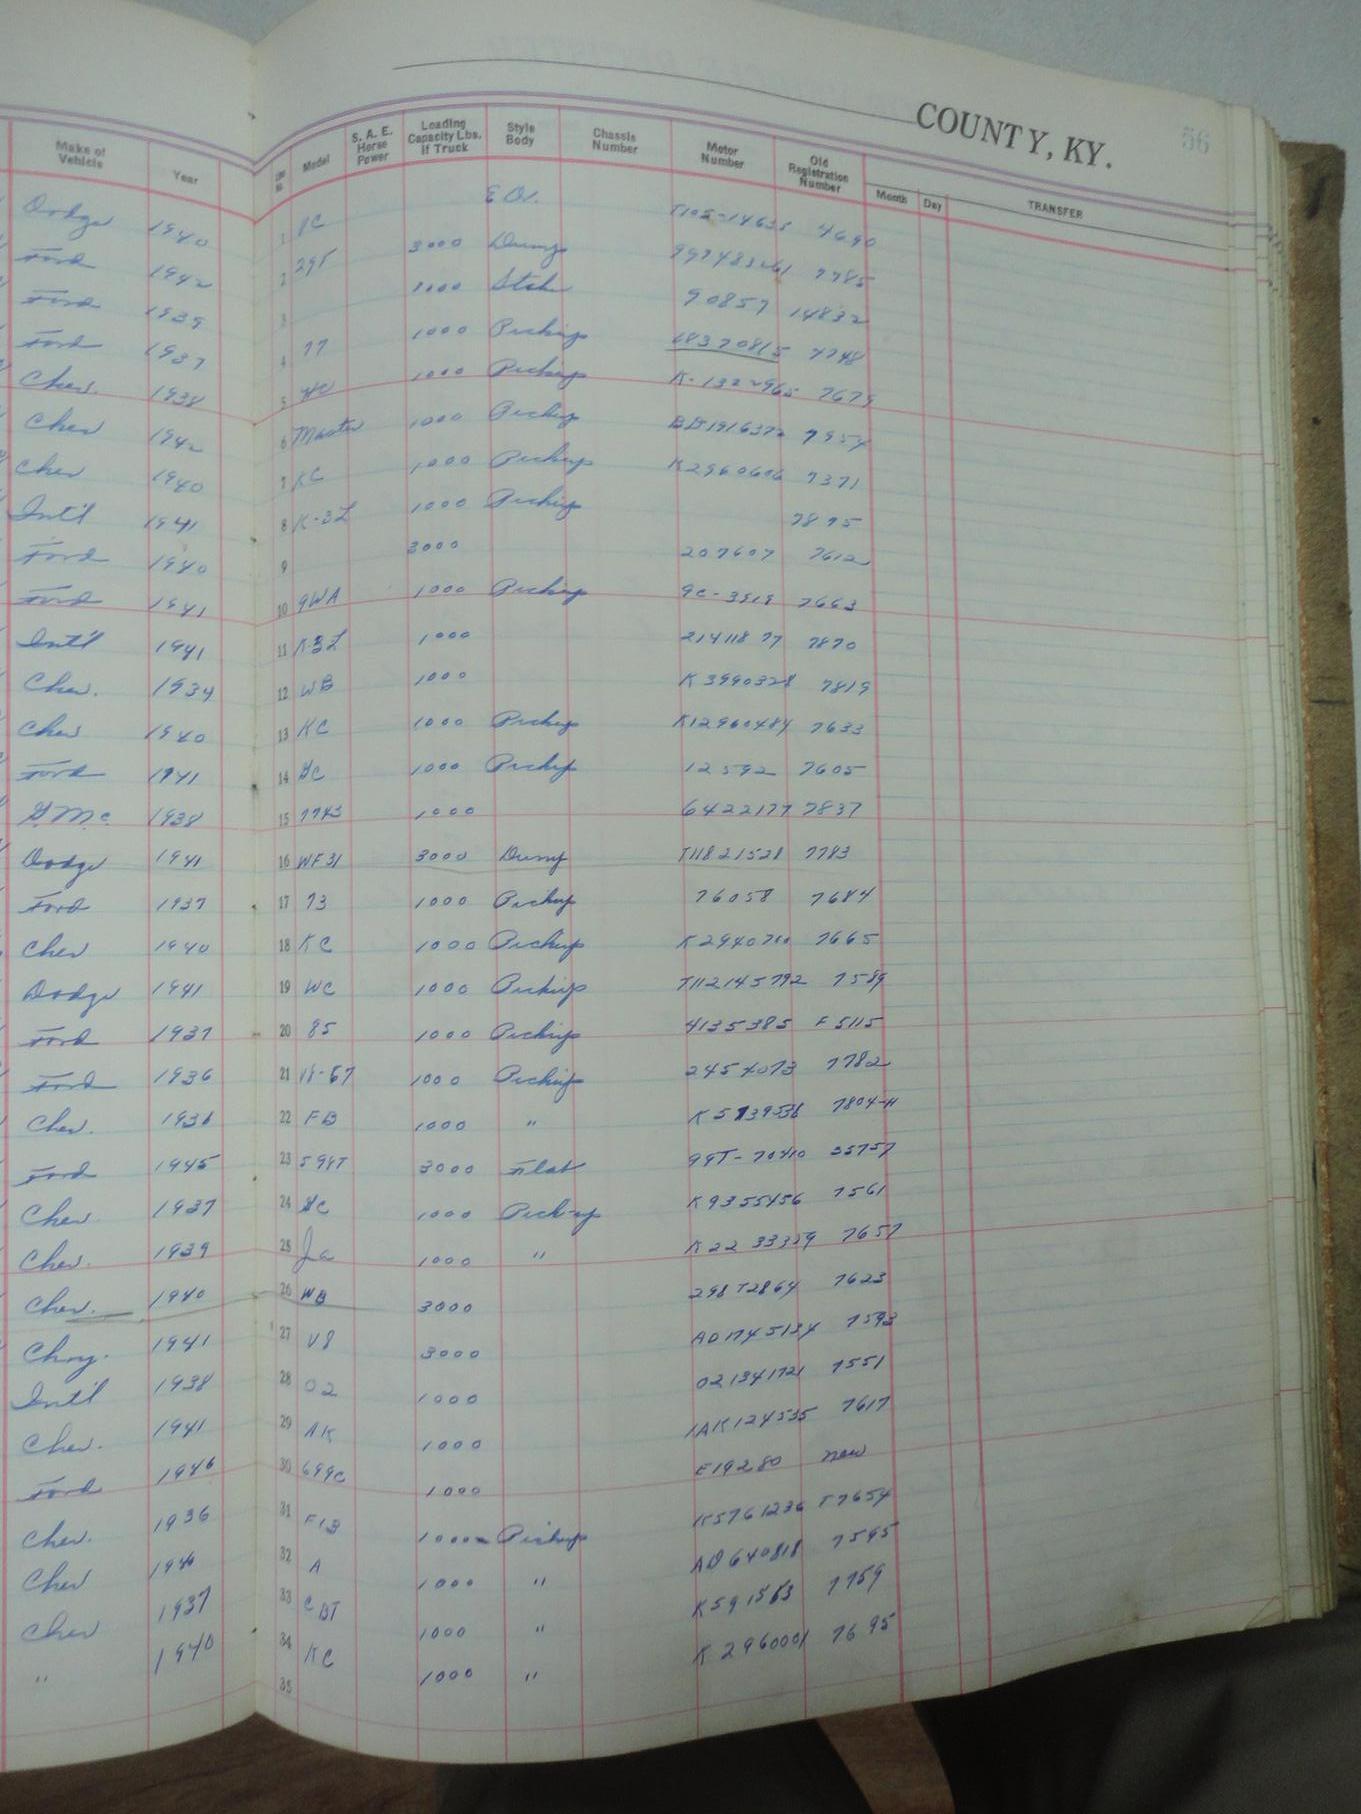 COUNTY, KY. 56
Make of Vehicle Year Line No. Model S. A. E. Horse Power Loading Capacity Lbs. If Truck Style Body Chassis Number Motor Number Old Registration Number Month Day TRANSFER
Dodge 1940 1 4690
Ford 1942 2 29T 3000 Dump 7785
Ford 1939 3 1000 90857 14832
Ford 1937 4 77 1000 Pickup 18370815 7748
Chev. 1938 5 1000 Pickup K-1322965 7679
Chev 1942 6 Master 1000 Pickup 7954
Chev 1940 7 KC 1000 Pickup K2960606 7371
Int'l 1941 8 K-3L 1000 Pickup 7875
Ford 1940 9 3000 207607 7612
Ford 1941 10 9WA 1000 Pickup 9C-3919 7663
Int'l 1941 11 K3L 1000 21411877 7870
Chev. 1934 12 WB 1000 K3990328 7819
Chev 1940 13 KC 1000 Pickup K12960484 7633
Ford 1941 14 GC 1000 Pickup 12592 7605
G.M.C. 1938 15 1000 6422177 7837
Dodge 1941 16 WF31 3000 Dump T11821528 7783
Ford 1937 17 73 1000 Pickup 76058 7684
Chev 1940 18 KC 1000 Pickup K2940710 7665
Dodge 1941 19 WC 1000 Pickup T112145792 7589
Ford 1937 20 85 1000 Pickup 4135385 F5115
Ford 1936 21 1000 Pickup 2454073 7782
Chev. 1936 22 FB 1000 " 7804-H
Ford 1945 23 598T 3000 Flat 99T-70410 35757
Chev. 1937 24 GC 1000 Pick-up K9355456 7561
Chev. 1939 25 Ja 1000 " K2233359 7657
Chev. 1940 26 WB 3000 298T2864 7623
1941 27 V8 3000 AD1745134 7593
Int'l 1938 28 02 1000 021341721 7551
Chev. 1941 29 AK 1000 1AK124535 7617
Ford 1946 30 699C 1000 E19280 new
Chev. 1936 31 1000 Pickup K5761236 T7654
Chev 1940 32 A 1000 " AD640818 7595
Chev 1937 33 1000 " K591563 7759
" 1940 34 KC 1000 " K2960001 7695
35